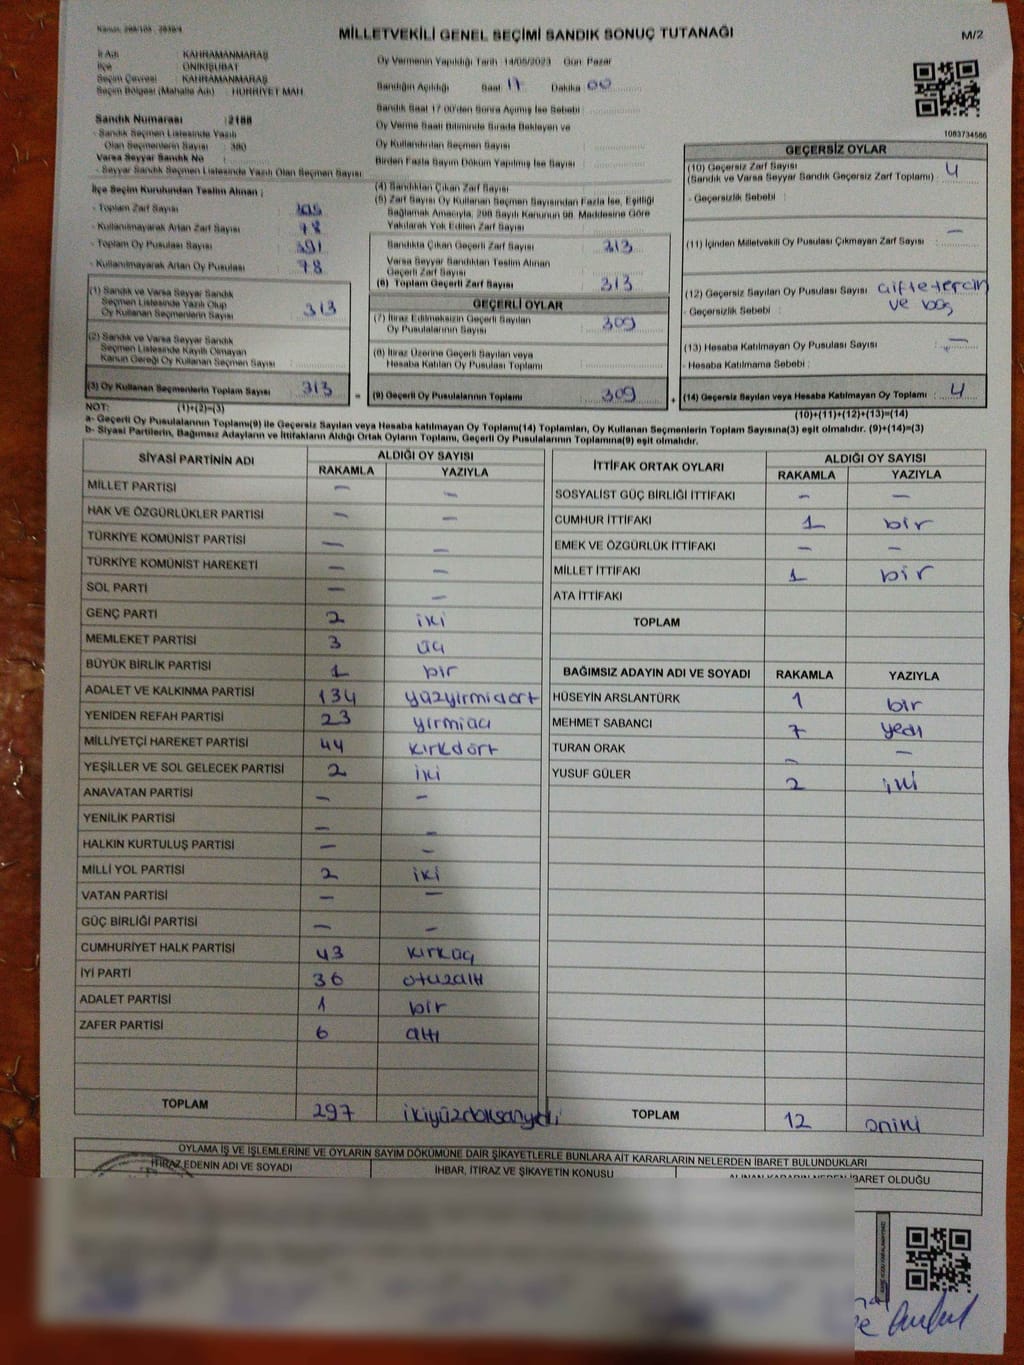 MİLLETVEKİLİ GENEL SEÇİMİ SANDIK SONUÇ TUTANAĞI
M/2
İl Adı : KAHRAMANMARAŞ
İlçe : ONİKİŞUBAT
Seçim Çevresi : KAHRAMANMARAŞ
Seçim Bölgesi (Mahalle Adı) : HÜRRİYET MAH.
Oy Vermenin Yapıldığı Tarih :14/05/2023 Gün: Pazar
Sandığın Açıldığı Saat 17 Dakika 00
Sandık Saat 17:00'den Sonra Açılmış İse Sebebi :
Oy Verme Saati Bitiminde Sırada Bekleyen ve
Oy Kullandırılan Seçmen Sayısı :
Birden Fazla Sayım Döküm Yapılmış İse Sayısı :
Sandık Numarası : 2188
- Sandık Seçmen Listesinde Yazılı
Olan Seçmenlerin Sayısı : 380
Varsa Seyyar Sandık No :
- Seyyar Sandık Seçmen Listesinde Yazılı Olan Seçmen Sayısı:
İlçe Seçim Kurulundan Teslim Alınan ;
- Toplam Zarf Sayısı :
- Kullanılmayarak Artan Zarf Sayısı : 78
- Toplam Oy Pusulası Sayısı : 391
- Kullanılmayarak Artan Oy Pusulası : 78
(1) Sandık ve Varsa Seyyar Sandık
Seçmen Listesinde Yazılı Olup
Oy Kullanan Seçmenlerin Sayısı : 313
(2) Sandık ve Varsa Seyyar Sandık
Seçmen Listesinde Kayıtlı Olmayan
Kanun Gereği Oy Kullanan Seçmen Sayısı :
(3) Oy Kullanan Seçmenlerin Toplam Sayısı : 313
(4) Sandıktan Çıkan Zarf Sayısı :
(5) Zarf Sayısı Oy Kullanan Seçmen Sayısından Fazla İse, Eşitliği
Sağlamak Amacıyla, 298 Sayılı Kanunun 98. Maddesine Göre
Yakılarak Yok Edilen Zarf Sayısı :
Sandıkta Çıkan Geçerli Zarf Sayısı : 313
Varsa Seyyar Sandıktan Teslim Alınan
Geçerli Zarf Sayısı :
(6) Toplam Geçerli Zarf Sayısı : 313
GEÇERLİ OYLAR
(7) İtiraz Edilmeksizin Geçerli Sayılan
Oy Pusulalarının Sayısı : 309
(8) İtiraz Üzerine Geçerli Sayılan veya
Hesaba Katılan Oy Pusulası Toplamı :
(9) Geçerli Oy Pusulalarının Toplamı : 309
1083734586
GEÇERSİZ OYLAR
(10) Geçersiz Zarf Sayısı
(Sandık ve Varsa Seyyar Sandık Geçersiz Zarf Toplamı) : 4
- Geçersizlik Sebebi :
(11) İçinden Milletvekili Oy Pusulası Çıkmayan Zarf Sayısı : -
(12) Geçersiz Sayılan Oy Pusulası Sayısı : çiftetercih
- Geçersizlik Sebebi : ve boş
(13) Hesaba Katılmayan Oy Pusulası Sayısı : -
- Hesaba Katılmama Sebebi :
(14) Geçersiz Sayılan veya Hesaba Katılmayan Oy Toplamı : 4
NOT: (1)+(2)=(3)
(10)+(11)+(12)+(13)=(14)
a- Geçerli Oy Pusulalarının Toplamı(9) ile Geçersiz Sayılan veya Hesaba Katılmayan Oy Toplamı(14) Toplamları, Oy Kullanan Seçmenlerin Toplam Sayısına(3) eşit olmalıdır. (9)+(14)=(3)
b- Siyasi Partilerin, Bağımsız Adayların ve İttifakların Aldığı Ortak Oyların Toplamı, Geçerli Oy Pusulalarının Toplamına(9) eşit olmalıdır.
SİYASİ PARTİNİN ADI ALDIĞI OY SAYISI
RAKAMLA YAZIYLA
MİLLET PARTİSİ - -
HAK VE ÖZGÜRLÜKLER PARTİSİ - -
TÜRKİYE KOMÜNİST PARTİSİ - -
TÜRKİYE KOMÜNİST HAREKETİ - -
SOL PARTİ - -
GENÇ PARTİ 2 iki
MEMLEKET PARTİSİ 3 üç
BÜYÜK BİRLİK PARTİSİ 1 bir
ADALET VE KALKINMA PARTİSİ 134 yüzyirmidört
YENİDEN REFAH PARTİSİ 23 yirmiüç
MİLLİYETÇİ HAREKET PARTİSİ 44 kırkdört
YEŞİLLER VE SOL GELECEK PARTİSİ 2 iki
ANAVATAN PARTİSİ - -
YENİLİK PARTİSİ - -
HALKIN KURTULUŞ PARTİSİ - -
MİLLİ YOL PARTİSİ 2 iki
VATAN PARTİSİ - -
GÜÇ BİRLİĞİ PARTİSİ - -
CUMHURİYET HALK PARTİSİ 43 kırküç
İYİ PARTİ 36 otuzaltı
ADALET PARTİSİ 1 bir
ZAFER PARTİSİ 6 altı
TOPLAM 297 ikiyüzdoksanyedi
İTTİFAK ORTAK OYLARI ALDIĞI OY SAYISI
RAKAMLA YAZIYLA
SOSYALİST GÜÇ BİRLİĞİ İTTİFAKI - -
CUMHUR İTTİFAKI 1 bir
EMEK VE ÖZGÜRLÜK İTTİFAKI - -
MİLLET İTTİFAKI 1 bir
ATA İTTİFAKI
TOPLAM
BAĞIMSIZ ADAYIN ADI VE SOYADI RAKAMLA YAZIYLA
HÜSEYİN ARSLANTÜRK 1 bir
MEHMET SABANCI 7 yedi
TURAN ORAK - -
YUSUF GÜLER 2 iki
TOPLAM 12 oniki
OYLAMA İŞ VE İŞLEMLERİNE VE OYLARIN SAYIM DÖKÜMÜNE DAİR ŞİKAYETLERLE BUNLARA AİT KARARLARIN NELERDEN İBARET BULUNDUKLARI
İTİRAZ EDENİN ADI VE SOYADI
İHBAR, İTİRAZ VE ŞİKAYETİN KONUSU
ALINAN KARARIN NEDEN İBARET OLDUĞU